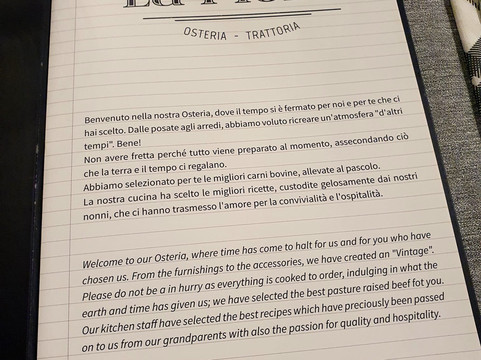 OSTERIA - TRATTORIA
Benvenuto nella nostra Osteria, dove il tempo si è fermato per noi e per te che ci
hai scelto. Dalle posate agli arredi, abbiamo voluto ricreare un'atmosfera "d'altri
tempi". Bene!
Non avere fretta perché tutto viene preparato al momento, assecondando ciò
che la terra e il tempo ci regalano.
Abbiamo selezionato per te le migliori carni bovine, allevate al pascolo.
La nostra cucina ha scelto le migliori ricette, custodite gelosamente dai nostri
nonni, che ci hanno trasmesso l'amore per la convivialità e l'ospitalità.
Welcome to our Osteria, where time has come to halt for us and for you who have
chosen us. From the furnishings to the accessories, we have created an "Vintage".
Please do not be a in hurry as everything is cooked to order, indulging in what the
earth and time has given us; we have selected the best pasture raised beef fot you.
Our kitchen staff have selected the best recipes which have preciously been passed
on to us from our grandparents with also the passion for quality and hospitality.